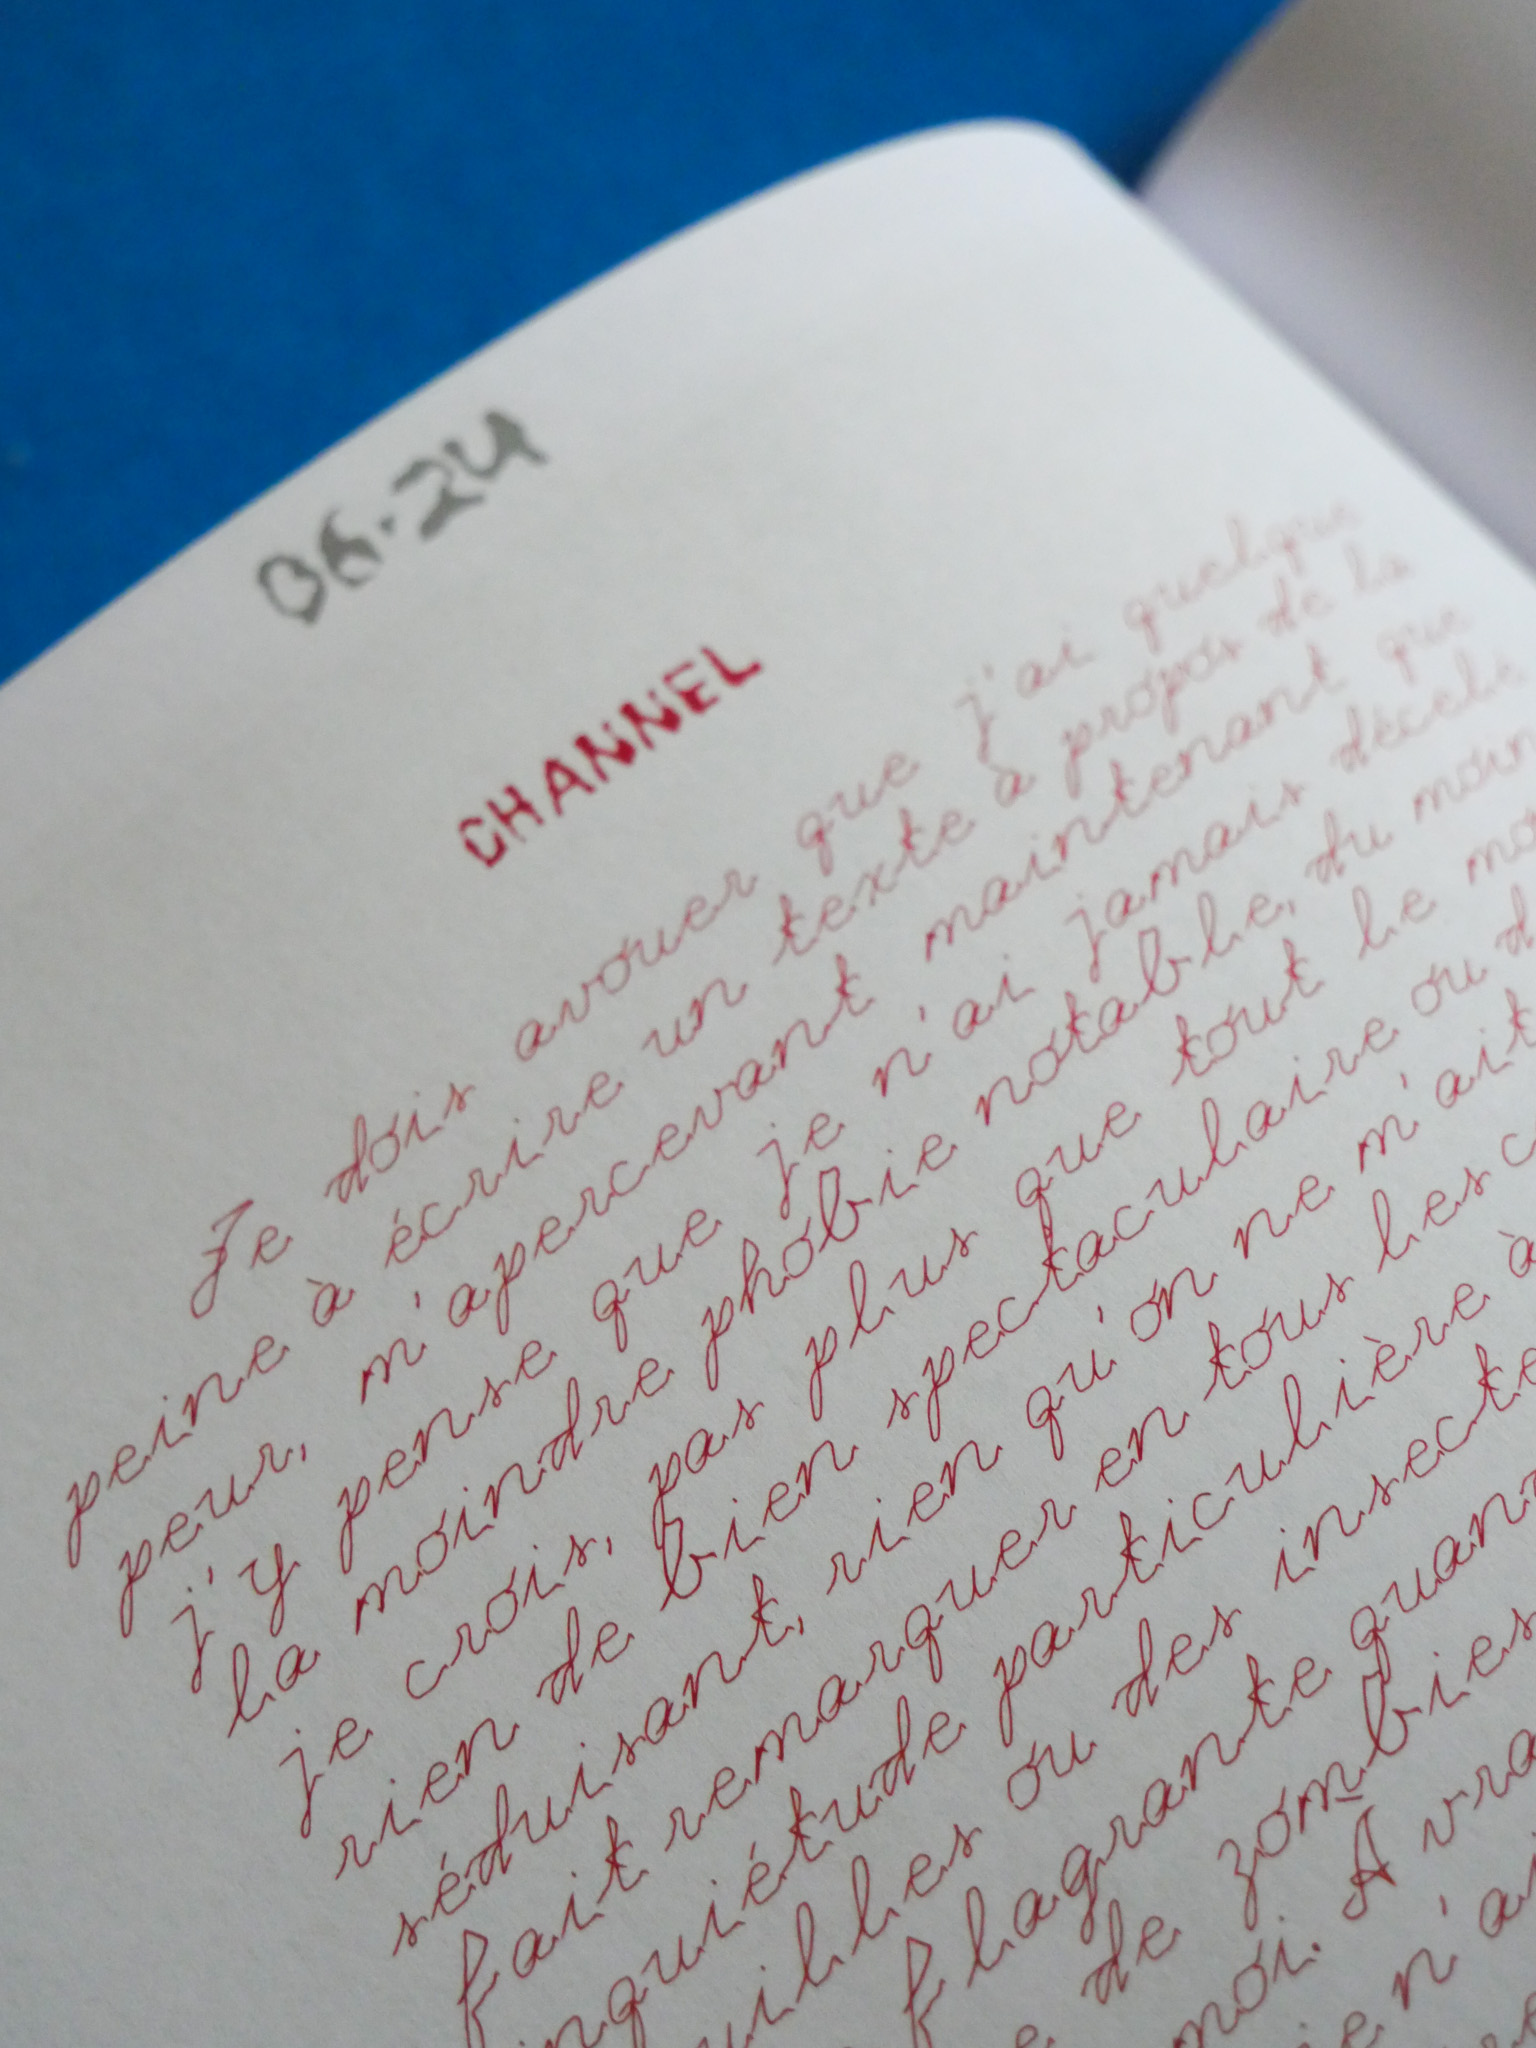 06.24
CHANNEL
Je dois avouer que j'ai quelque
peine à écrire un texte à propos de la
peur, m'apercevant maintenant que
j'y pense que je n'ai jamais décelé
la moindre phobie notable, du moin
je crois, pas plus que tout le mo
rien de bien spectaculaire ou d
séduisant, rien qu'on ne m'ait
fait remarquer en tous les c
inquiétude particulière à
uilles ou des insecte
flagrante quan
e de zombies
moi. A vra
ien n'ai